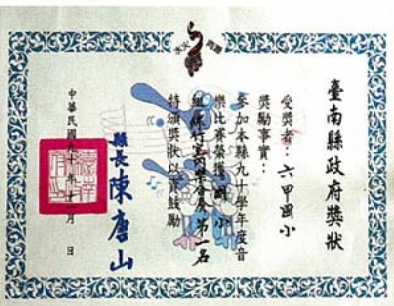 臺南縣政府獎狀
受獎者：六甲國小
獎勵事實：
參加本縣九十學年度音
樂比賽榮獲國小
組 第一名
特頒獎狀以資鼓勵
縣長陳唐山
中華民國九十年十一月 日